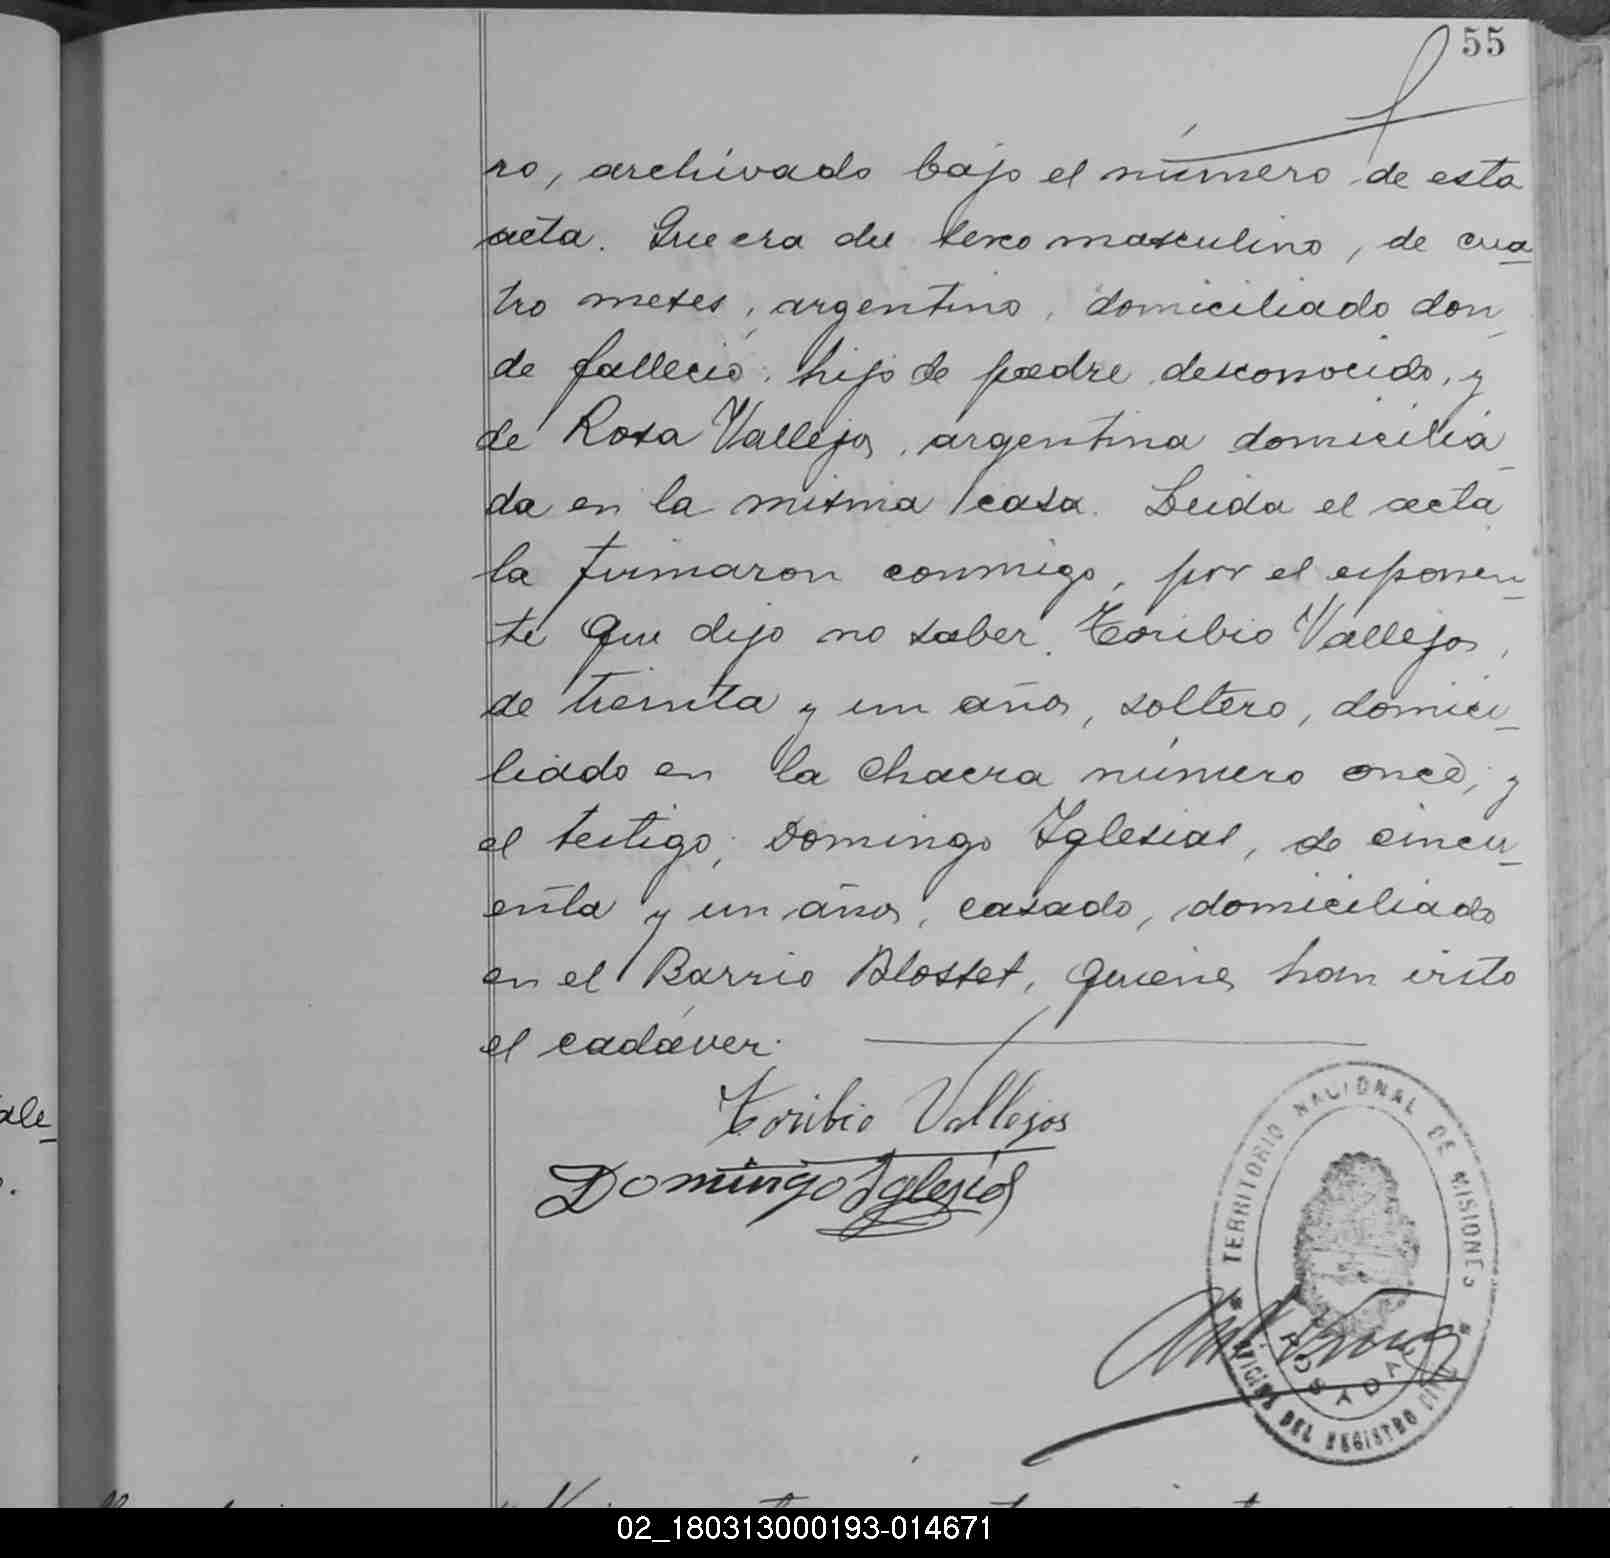 55
ro, archivado bajo el número de esta
acta. Que era del sexo masculino, de cua
tro meses, argentino, domiciliado don
de falleció; hijo de padre desconocido, y
de Rosa Vallejos, argentina domicilia
da en la misma casa. Leida el acta
la firmaron conmigo, por el exponen
te que dijo no saber, Toribio Vallejos,
de treinta y un años, soltero, domici
liado en la chacra número once; y
el testigo; Domingo Iglesias, de cincu
enta y un años, casado, domiciliado
en el Barrio Blosset, quienes han visto
el cadáver.
Toribio Vallejos
Domingo Iglesias
TERRITORIO NACIONAL DE MISIONES
POSADAS
OFICINA DEL REGISTRO CIVIL
ale
02_180313000193-014671